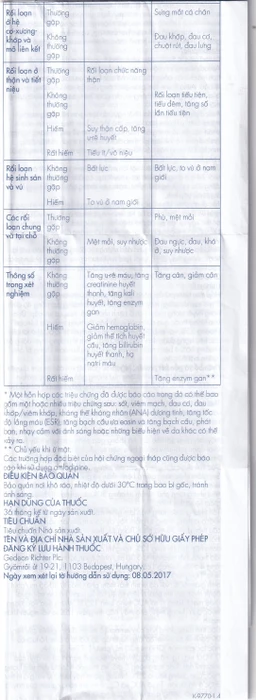 Rối loạn Thường Sưng mắt cá chân
ở hệ gặp
cơ xương- Không Đau khớp, đau cơ,
khớp và thường chuột rút, đau lưng
mô liên kết gặp
Rối loạn ở Thường Rối loạn chức năng
thận và tiết gặp thận
niệu Không Rối loạn tiểu tiện,
thường tiểu đêm, tăng số
gặp lần tiểu tiện
Hiếm Suy thận cấp, tăng
urê huyết
Rất hiếm Thiểu niệu
Rối loạn Không Bất lực Bất lực, to vú ở nam
hệ sinh sản thường giới
và vú gặp
Hiếm To vú ở nam giới
Các rối Thường Phù, mệt mỏi
loạn chung gặp
và tại chỗ Không Mệt mỏi, suy nhược Đau ngực, đau, khó
thường ở, suy nhược
gặp
Thông số Không Tăng urê máu, tăng Tăng cân, giảm cân
trong xét thường creatinine huyết
nghiệm gặp thanh, tăng kali
huyết, tăng enzym
gan
Hiếm Giảm hemoglobin,
giảm thể tích huyết
cầu, tăng bilirubin
huyết thanh, hạ
natri máu
Rất hiếm Tăng enzym gan**
* Một hỗn hợp các triệu chứng đã được báo cáo trong đó có thể bao
gồm một hoặc nhiều triệu chứng sau: sốt, viêm mạch, đau cơ, đau
khớp/viêm khớp, kháng thể kháng nhân (ANA) dương tính, tăng tốc
độ lắng máu (ESR), tăng bạch cầu ưa eosin và tăng bạch cầu, phát
ban, nhạy cảm với ánh sáng hoặc những biểu hiện về da khác có thể
xảy ra.
** Chủ yếu khi ứ mật.
Các trường hợp đặc biệt của hội chứng ngoại tháp cũng được báo
cáo khi sử dụng amlodipine.
ĐIỀU KIỆN BẢO QUẢN
Bảo quản nơi khô ráo, nhiệt độ dưới 30°C trong bao bì gốc, tránh
ánh sáng.
HẠN DÙNG CỦA THUỐC
36 tháng kể từ ngày sản xuất.
TIÊU CHUẨN
Tiêu chuẩn Nhà sản xuất
TÊN VÀ ĐỊA CHỈ NHÀ SẢN XUẤT VÀ CHỦ SỞ HỮU GIẤY PHÉP
ĐĂNG KÝ LƯU HÀNH THUỐC
Gedeon Richter Plc.
Gyömrői út 19-21, 1103 Budapest, Hungary.
Ngày xem xét lại tờ hướng dẫn sử dụng: 08.05.2017